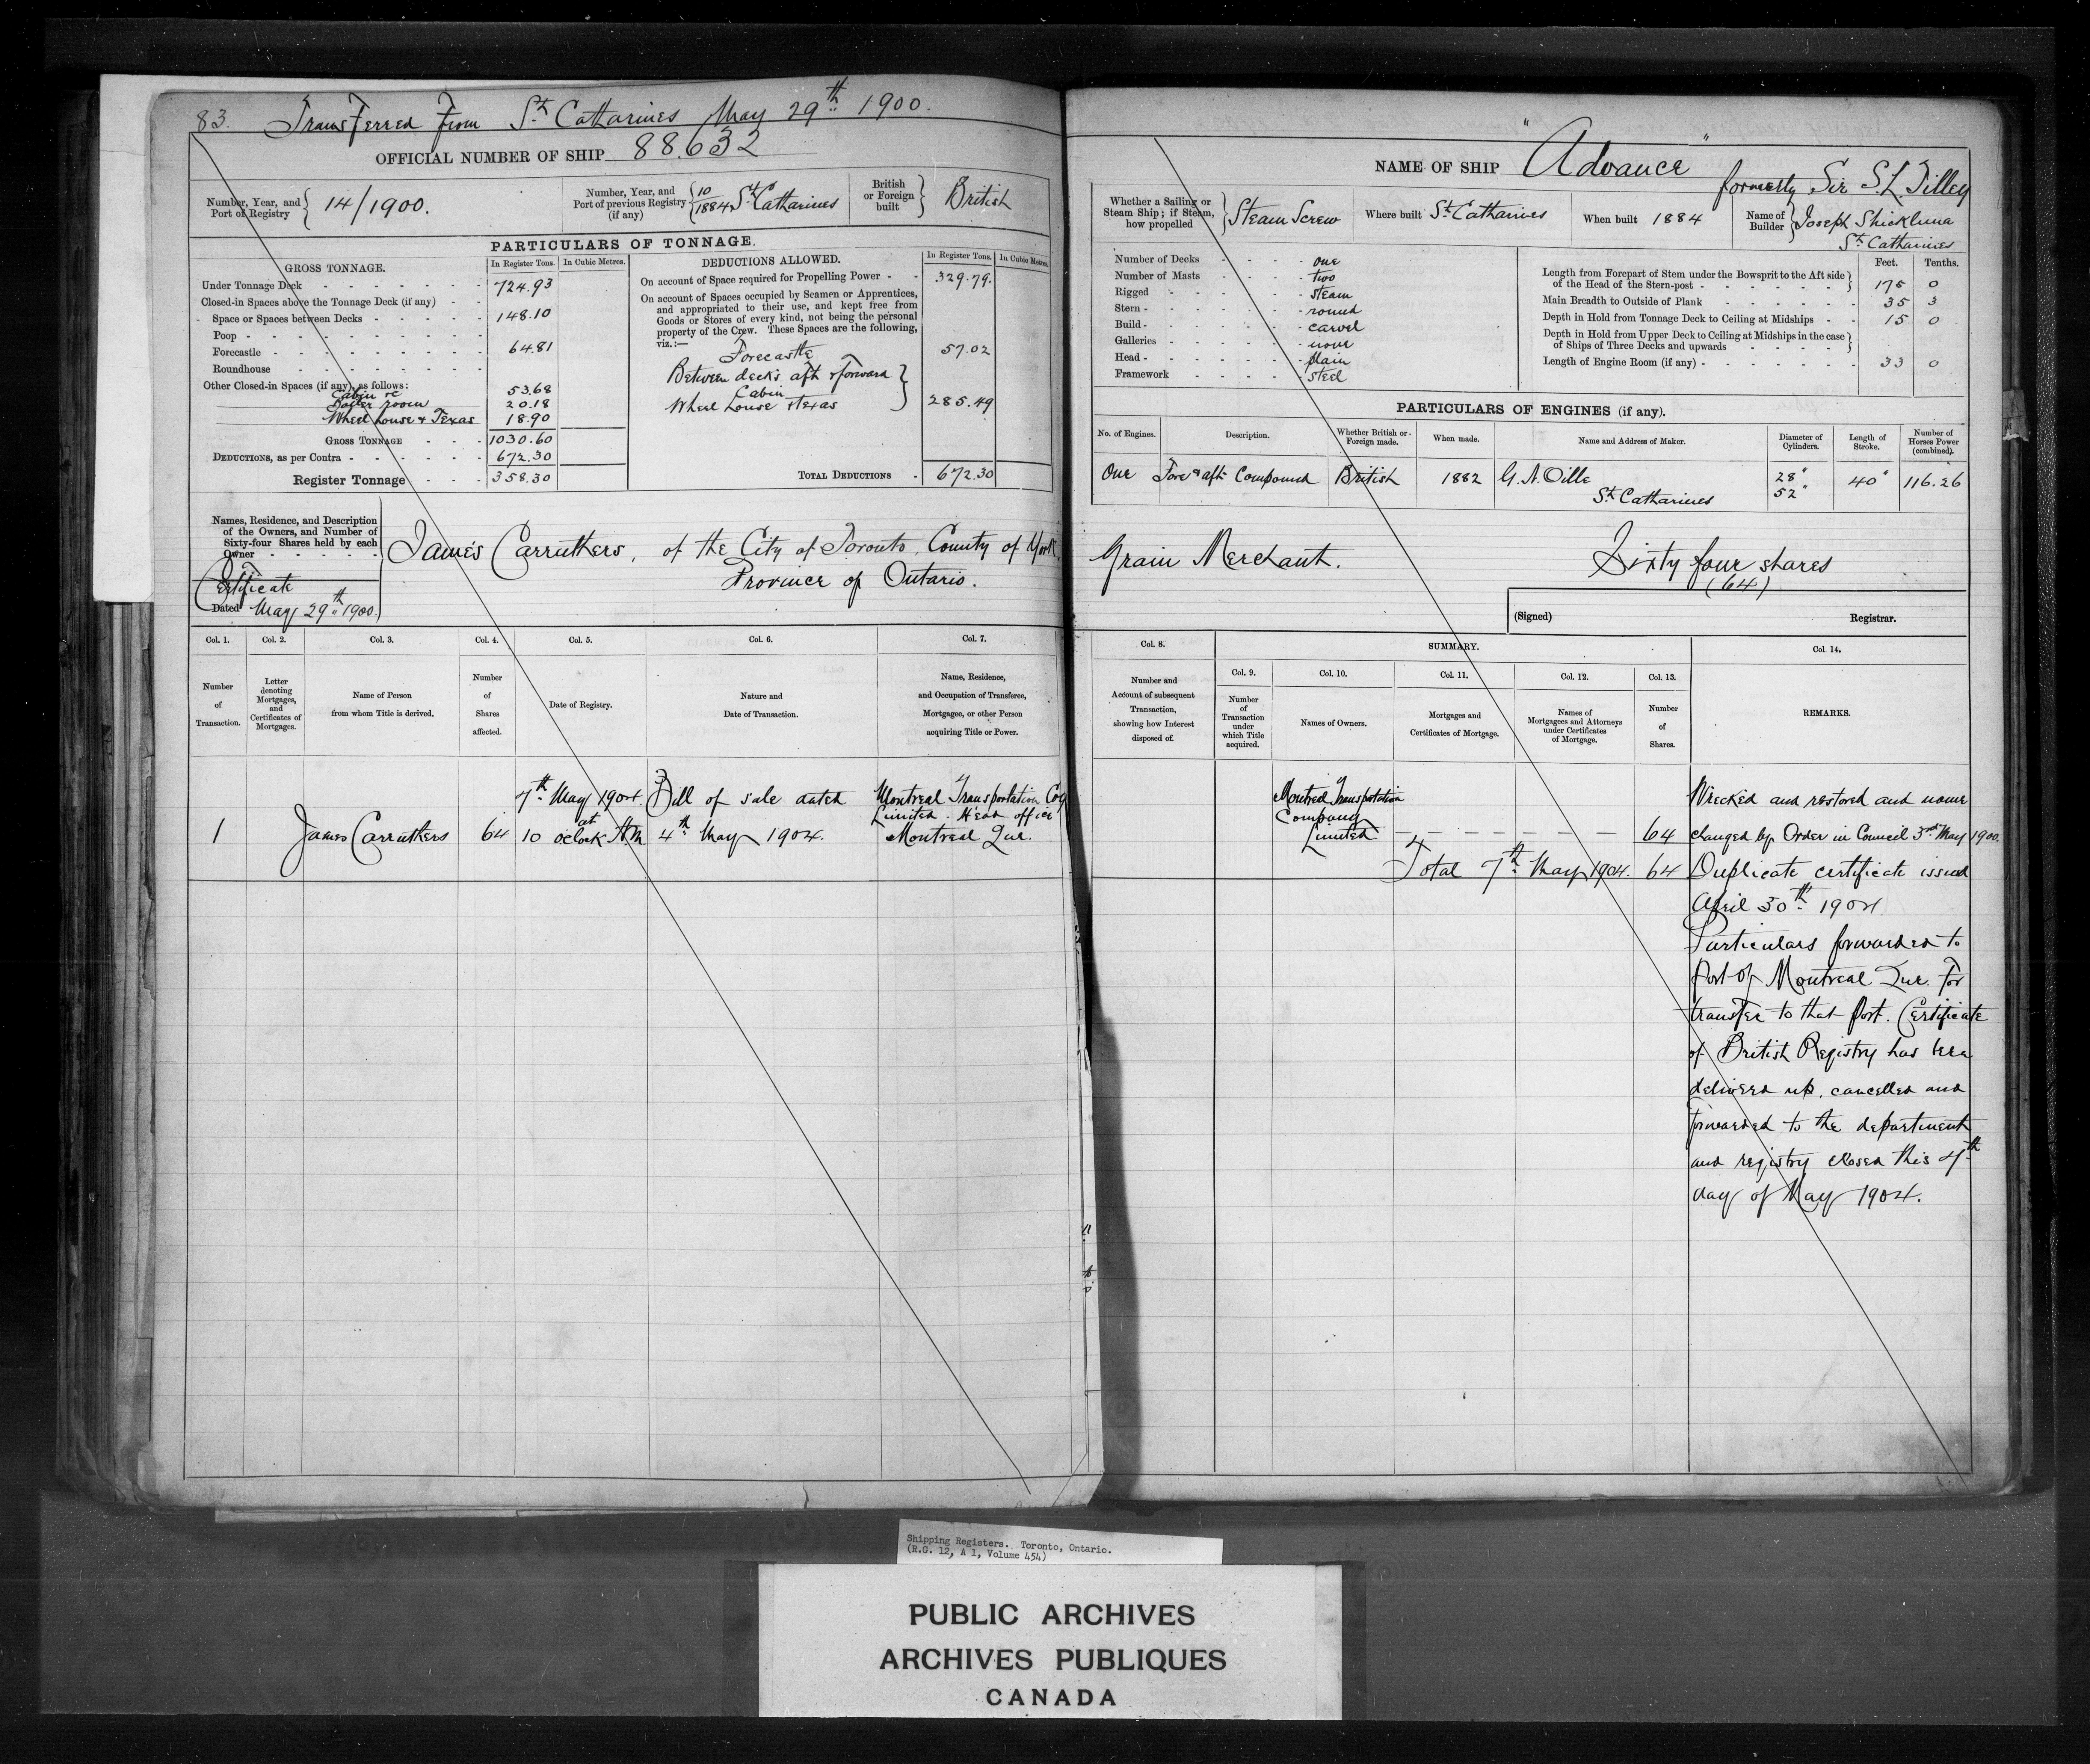 83. Transferred from St. Catharines May 29th 1900.
OFFICIAL NUMBER OF SHIP 88.632
Number, Year, and Port of Registry 14/1900.
Number, Year, and Port of previous Registry (if any) 10/1884 St Catharines
British or Foreign built British
PARTICULARS OF TONNAGE.
GROSS TONNAGE. In Register Tons. In Cubic Metres.
Under Tonnage Deck 724.93
Closed-in Spaces above the Tonnage Deck (if any)
Space or Spaces between Decks 148.10
Poop
Forecastle 64.81
Roundhouse
Other Closed-in Spaces (if any), as follows:
Cabin &c 53.68
Boiler room 20.18
Wheel house & Texas 18.90
GROSS TONNAGE 1030.60
DEDUCTIONS, as per Contra 672.30
Register Tonnage 358.30
DEDUCTIONS ALLOWED. In Register Tons. In Cubic Metres.
On account of Space required for Propelling Power 329.79.
On account of Spaces occupied by Seamen or Apprentices,
and appropriated to their use, and kept free from
Goods or Stores of every kind, not being the personal
property of the Crew. These Spaces are the following,
viz.:—
Forecastle 57.02
Between decks aft & forward
Cabin
Wheel house & texas 285.49
TOTAL DEDUCTIONS 672.30
Names, Residence, and Description
of the Owners, and Number of
Sixty-four Shares held by each
Owner
James Carruthers, of the City of Toronto, County of York,
Province of Ontario.
Certificate
Dated May 29th 1900.
Col. 1. Col. 2. Col. 3. Col. 4. Col. 5. Col. 6. Col. 7.
Number of Transaction.
Letter denoting Mortgages, and Certificates of Mortgages.
Name of Person from whom Title is derived.
Number of Shares affected.
Date of Registry.
Nature and Date of Transaction.
Name, Residence, and Occupation of Transferee, Mortgagee, or other Person acquiring Title or Power.
1
James Carruthers
64
7th May 1904. at
10 o'clock A.M
Bill of sale dated
4th May 1904.
Montreal Transportation Coy
Limited. Head office
Montreal Que.
NAME OF SHIP "Advance"
formerly Sir S L Tilley
Whether a Sailing or Steam Ship; if Steam, how propelled Steam Screw
Where built St. Catharines
When built 1884
Name of Builder Joseph Shickluna
St. Catharines
Number of Decks one
Number of Masts two
Rigged steam
Stern round
Build carvel
Galleries none
Head plain
Framework steel
Feet. Tenths.
Length from Forepart of Stem under the Bowsprit to the Aft side
of the Head of the Stern-post 175 0
Main Breadth to Outside of Plank 35 3
Depth in Hold from Tonnage Deck to Ceiling at Midships 15 0
Depth in Hold from Upper Deck to Ceiling at Midships in the case
of Ships of Three Decks and upwards
Length of Engine Room (if any) 33 0
PARTICULARS OF ENGINES (if any).
No. of Engines. Description. Whether British or Foreign made. When made. Name and Address of Maker. Diameter of Cylinders. Length of Stroke. Number of Horses Power (combined).
One Fore & aft Compound British 1882 G. N. Oille 28" 40" 116.26
St. Catharines 52"
Grain Merchant. Sixty four shares
(64)
(Signed) Registrar.
Col. 8. SUMMARY. Col. 14.
Col. 9. Col. 10. Col. 11. Col. 12. Col. 13.
Number and Account of subsequent Transaction, showing how Interest disposed of.
Number of Transaction under which Title acquired.
Names of Owners.
Mortgages and Certificates of Mortgage.
Names of Mortgagees and Attorneys under Certificates of Mortgage.
Number of Shares.
REMARKS.
Montreal Transportation
Company
Limited 64
Total 7th May 1904. 64
Wrecked and restored and name
changed by Order in Council 3rd May 1900.
Duplicate certificate issued
April 30th 1904.
Particulars forwarded to
Port of Montreal Que. for
transfer to that Port. Certificate
of British Registry has been
delivered up, cancelled and
forwarded to the department
and registry closed this 7th
day of May 1904.
Shipping Registers. Toronto, Ontario.
(R.G. 12, A 1, Volume 454)
PUBLIC ARCHIVES
ARCHIVES PUBLIQUES
CANADA